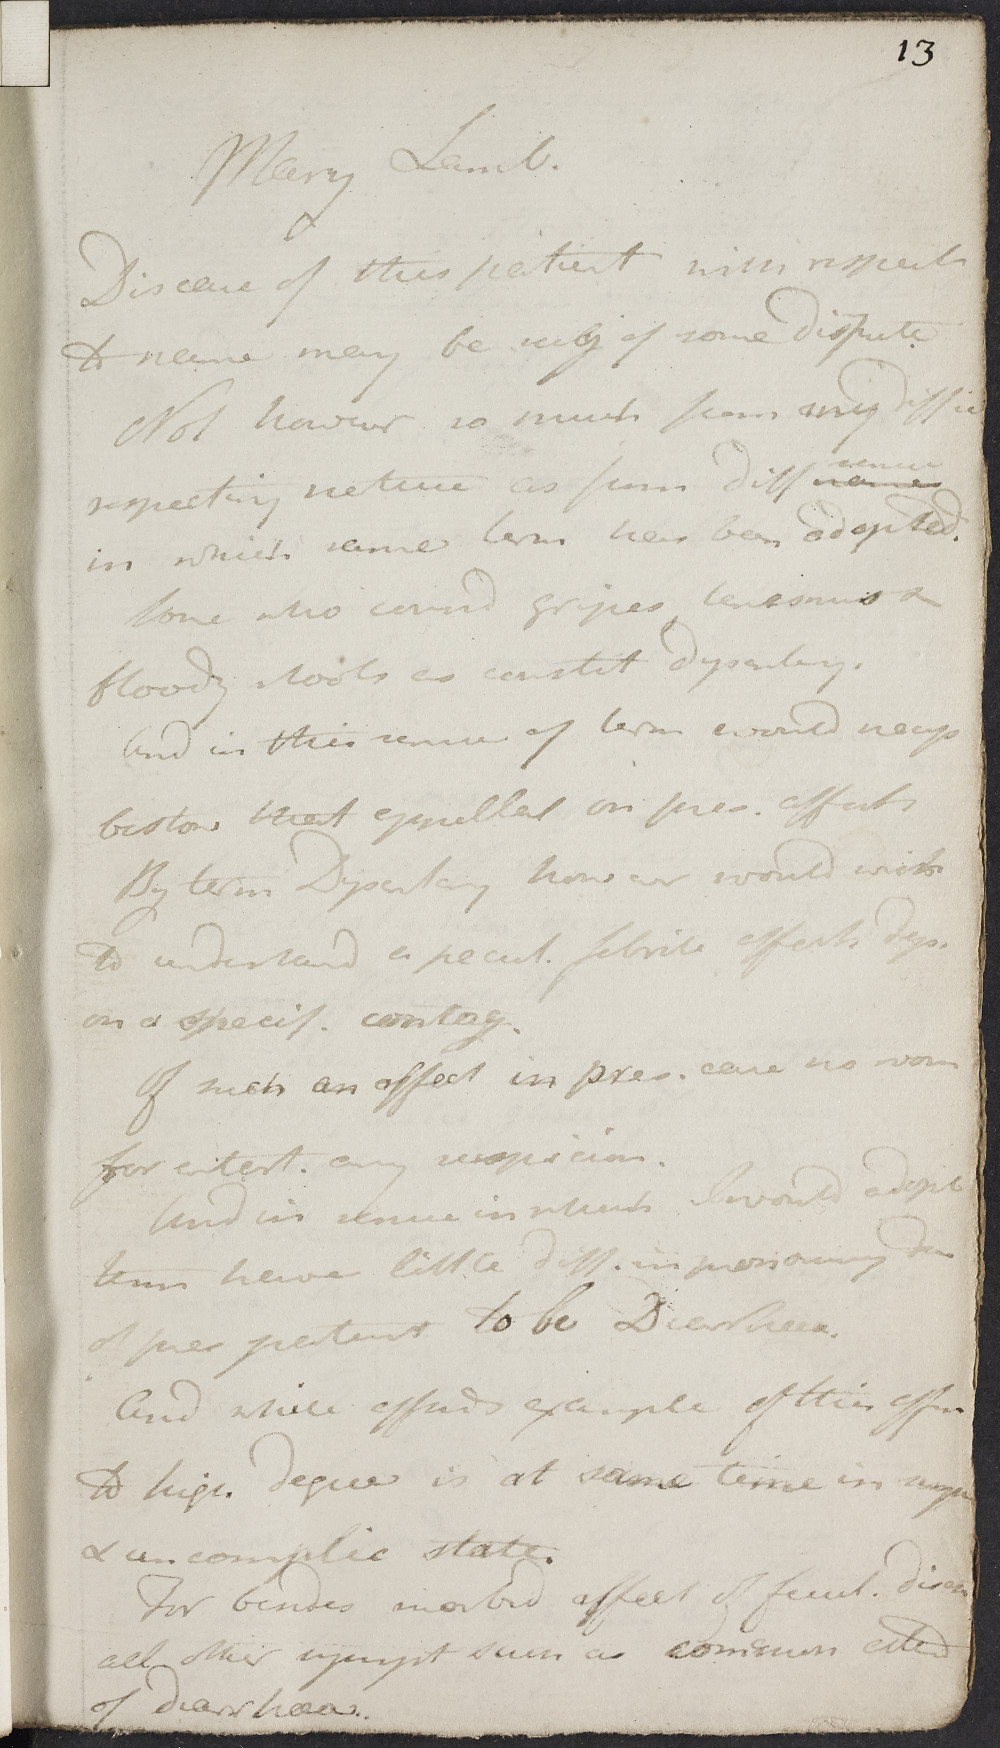 13
Mary Lamb.
Disease of this patient with respect
to name may be subj of some dispute
Not however so much from any diffic
respecting nature as from diff sense names
in which same term has been adopted.
Some who consid gripes, tenesmus &
bloody stools as constit Dysentery.
And in this sense of term would
bestow that appellat on pres. affect
By term Dysentery however would wish
to understand a pecul. febrile affect dep.
on a specif. contag.
Of such an affect in pres. case no room
for entert. any suspicion.
And in sense in which I would adopt
term have little diff. in pronouncg
of pres patient to be Diarrhoea.
And while affords example of this
to high degree is at same time in
& uncomplic state.
For besides morbid affect of fecul. disch
all other sympt such as common attend
of diarrhoea.